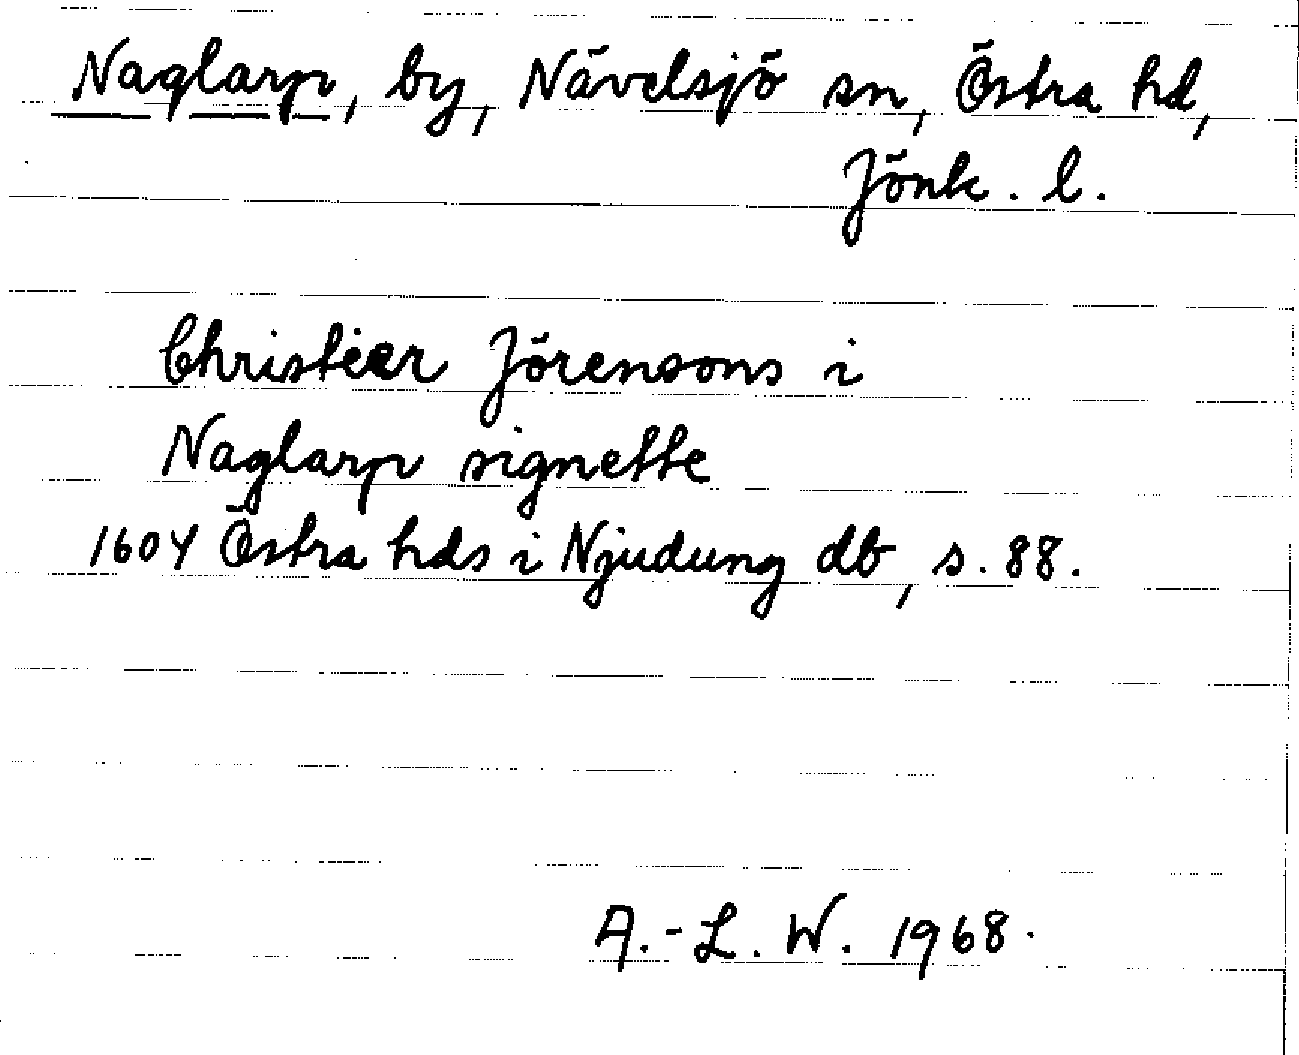 Naglarp, by, Nävelsjö sn, Östra hd,
Jönk. l.
Christier Jörensons i
Naglarp signette
1604 Östra hds i Njudung db, s. 88.
A.-L. W. 1968.